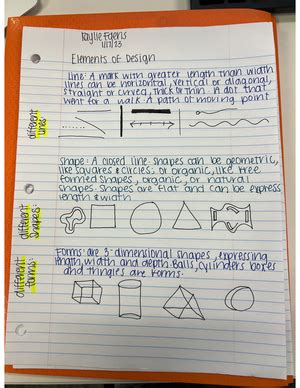 Kaylie Fgens
1/17/23
Elements of Design
Line: A mark with greater length than width
lines can be horizontal, vertical or diagonal,
straight or curved, thick or thin. A dot that
went for a walk. A path of moving point
different
lines:
Shape: A closed line. Shapes can be geometric,
like squares & circles; or organic, like free
formed shapes, organic, or natural
shapes. Shapes are flat and can be express
length & width
different
shapes:
Forms: are 3-dimensional shapes, expressing
length, width and depth. Balls, cylinders boxes
and thingles are forms.
different
forms: